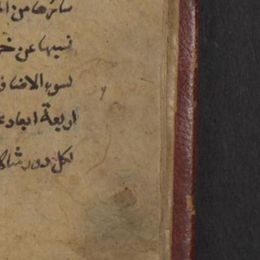 سائرها من ا
نسيها عن خر
لسوء الاضا ف
اربعة ابعاد ع
لكل دور شا